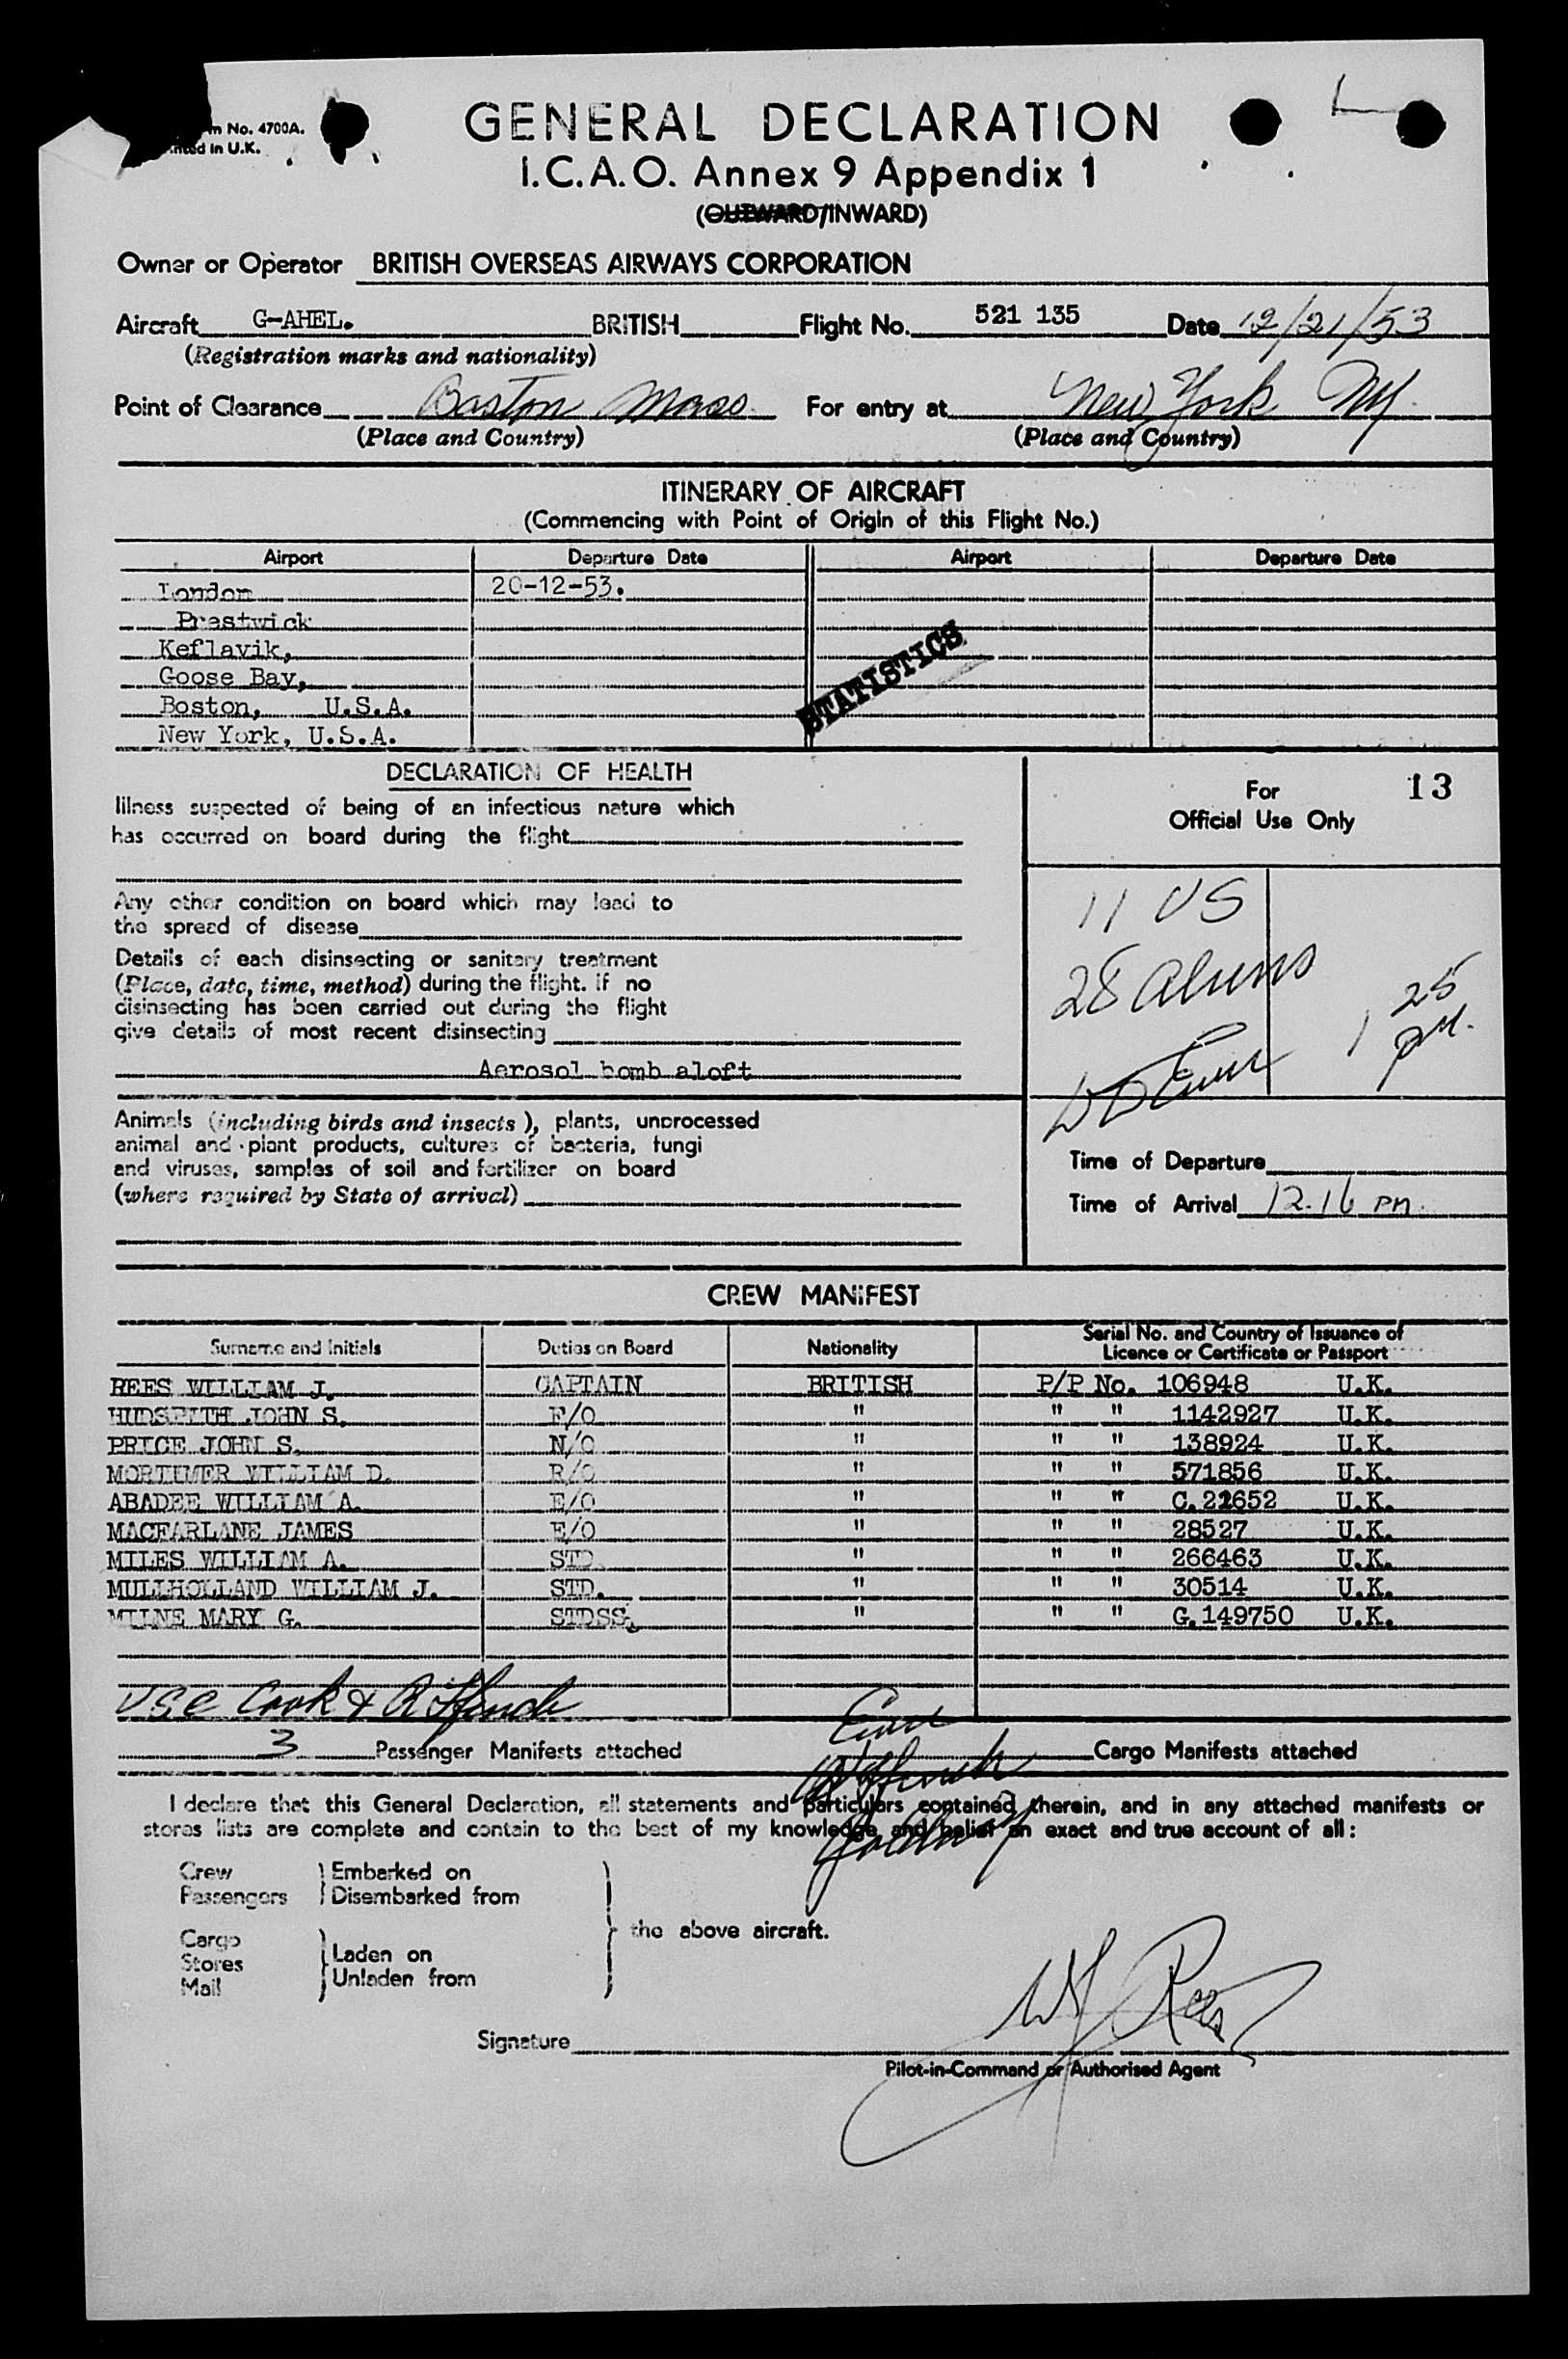 m No. 4700A.
nted in U.K.
GENERAL DECLARATION
I.C.A.O. Annex 9 Appendix 1
(OUTWARD/INWARD)
Owner or Operator BRITISH OVERSEAS AIRWAYS CORPORATION
Aircraft G-AHEL. BRITISH Flight No. 521 135 Date 12/21/53
(Registration marks and nationality)
Point of Clearance Boston Mass. For entry at New York NY.
(Place and Country) (Place and Country)
ITINERARY OF AIRCRAFT
(Commencing with Point of Origin of this Flight No.)
Airport Departure Date Airport Departure Date
London 20-12-53.
Prestwick
Keflavik,
Goose Bay,
Boston, U.S.A.
New York, U.S.A.
STATISTICS
DECLARATION OF HEALTH
Illness suspected of being of an infectious nature which
has occurred on board during the flight
Any other condition on board which may lead to
the spread of disease
Details of each disinsecting or sanitary treatment
(Place, date, time, method) during the flight. If no
disinsecting has been carried out during the flight
give details of most recent disinsecting
Aerosol bomb aloft
Animals (including birds and insects), plants, unprocessed
animal and plant products, cultures of bacteria, fungi
and viruses, samples of soil and fertilizer on board
(where required by State of arrival)
For 13
Official Use Only
11 US
28 Aliens
1 25 PM.
Time of Departure
Time of Arrival 12.16 PM.
CREW MANIFEST
Surname and Initials Duties on Board Nationality Serial No. and Country of Issuance of
Licence or Certificate or Passport
REES WILLIAM J. CAPTAIN BRITISH P/P No. 106948 U.K.
HUDSPITH JOHN S. F/O " " " 1142927 U.K.
PRICE JOHN S. N/O " " " 138924 U.K.
MORTIMER WILLIAM D. R/O " " " 571856 U.K.
ABADEE WILLIAM A. E/O " " " C.22652 U.K.
MACFARLANE JAMES E/O " " " 28527 U.K.
MILES WILLIAM A. STD. " " " 266463 U.K.
MULLHOLLAND WILLIAM J. STD. " " " 30514 U.K.
MILNE MARY G. STDSS. " " " G.149750 U.K.
USC Cook &
3 Passenger Manifests attached Cargo Manifests attached
I declare that this General Declaration, all statements and particulars contained therein, and in any attached manifests or
stores lists are complete and contain to the best of my knowledge and belief an exact and true account of all:
Crew } Embarked on
Passengers } Disembarked from
the above aircraft.
Cargo
Stores } Laden on
Mail } Unladen from
Signature WJ Rees
Pilot-in-Command or Authorised Agent